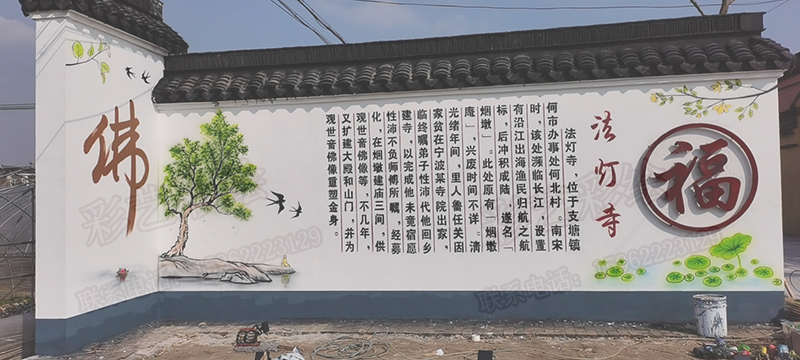 福
法灯寺
法灯寺，位于支塘镇
何市办事处何北村。南宋
时，该处濒临长江，设置
有沿江出海渔民归航之航
标，后冲积成陆，遂名「
烟墩」。此处原有一烟墩
庵」，兴废时间不详。清
光绪年间，里人鲁任关因
家贫在宁波某寺院出家，
临终嘱弟子性沛代他回乡
建寺，以完成他未竟宿愿
性沛不负师傅所嘱，经募
化，在烟墩建庙三间，供
观世音佛像等，不几年，
又扩建大殿和山门，并为
观世音佛像重塑金身。
佛
联系电话: